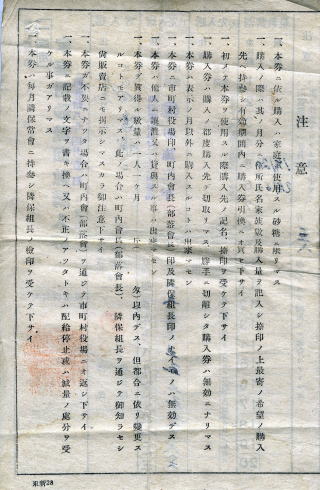 注意
一、本券ニ依ル購入ハ家庭用ニ使用スル砂糖ニ限リマス
一、購入ノ際ハ其ノ月分ノ 住所氏名家族数及購入量ヲ記入シ捺印ノ上最寄ノ希望ノ購入
先ヘ持参シ有効期間内ニ購入券引換ニオ買下サイ
一、初メテ本券ヲ使用スル際購入先ノ記名、捺印ヲ受ケテ下サイ
一、購入券ハ購入ノ都度購入先デ切取リマス、勝手ニ切離シタ購入券ハ無効ニナリマス
一、本券ハ表示ノ月以外ニ購入スルコトハ出来マセン
一、本券ニ市町村役場印、町内會長(部落會長)印及隣保組長印ノナイモノハ無効デス
一、本券ハ他人ニ譲渡又ハ貸與スル事ハ出来マセン
一、本券デ買得ル数量ハ一人一ヶ月 以内デス、但都合ニ依リ變更ス
ルコトモアリマス、此ノ場合ハ町内會長(部落會長)、隣保組長ヲ通ジテ御知ラセシ
尚販賣店ニモ掲示シマスカラ御注意下サイ
一、本券ガ不要ニナツタ場合ハ町内會(部落會)ヲ通ジテ市町村役場ニオ返シ下サイ
一、本券ニ記載ノ文字ヲ書キ換ヘ又ハ不正ノアツタトキハ配給停止或ハ減量ノ処分ヲ受
ケル事ガアリマス
一、本券ハ毎月隣保常會ニ持参シ隣保組長ノ検印ヲ受ケテ下サイ
東新28